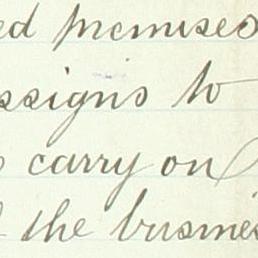 ed premises
ssigns to
carry on
the busines